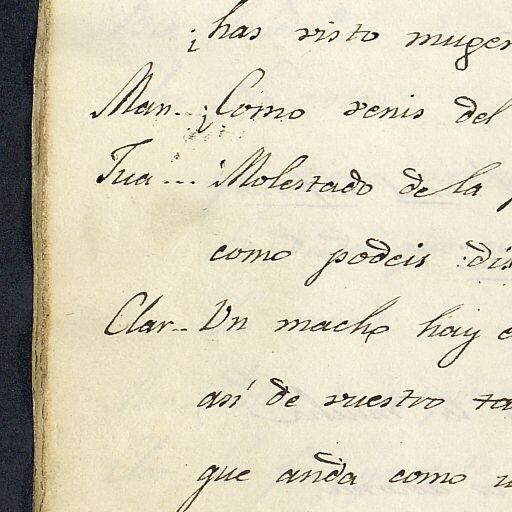 ¿has visto muger
Man... ¿Como venis del
Jua... Molestado de la
como podeis dis
Clar... Un macho hay
así de vuestro ta
que anda como